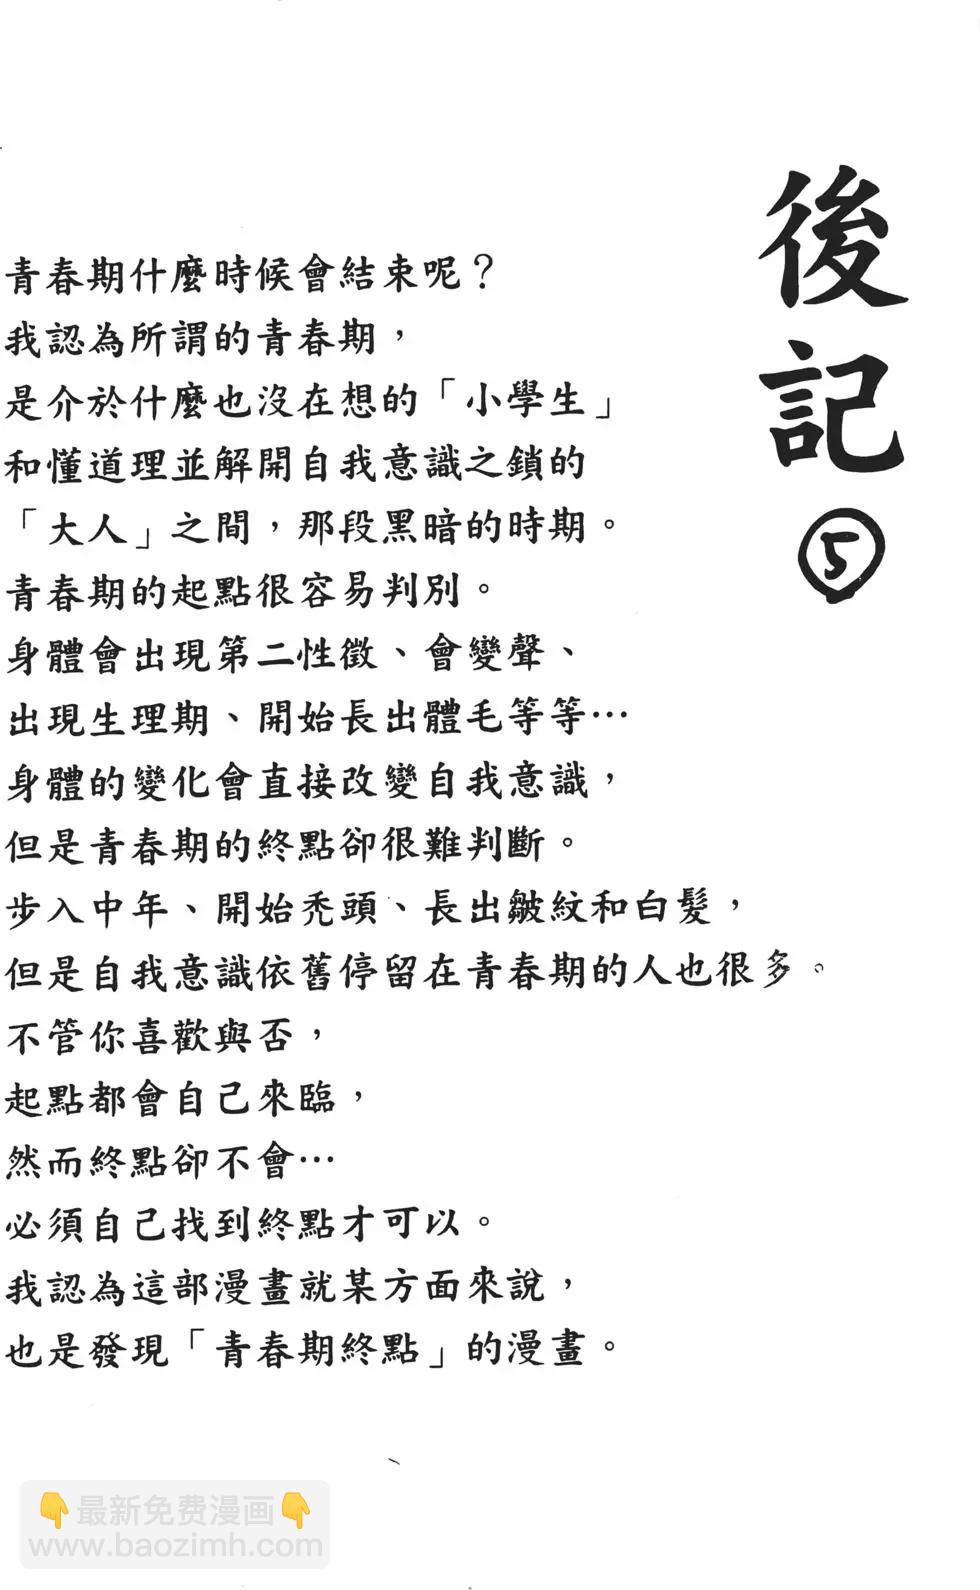 後記⑤
青春期什麼時候會結束呢？
我認為所謂的青春期，
是介於什麼也沒在想的「小學生」
和懂道理並解開自我意識之鎖的
「大人」之間，那段黑暗的時期。
青春期的起點很容易判別。
身體會出現第二性徵、會變聲、
出現生理期、開始長出體毛等等…
身體的變化會直接改變自我意識，
但是青春期的終點卻很難判斷。
步入中年、開始禿頭、長出皺紋和白髮，
但是自我意識依舊停留在青春期的人也很多。
不管你喜歡與否，
起點都會自己來臨，
然而終點卻不會…
必須自己找到終點才可以。
我認為這部漫畫就某方面來說，
也是發現「青春期終點」的漫畫。
👇最新免费漫画👇
www.baozimh.com